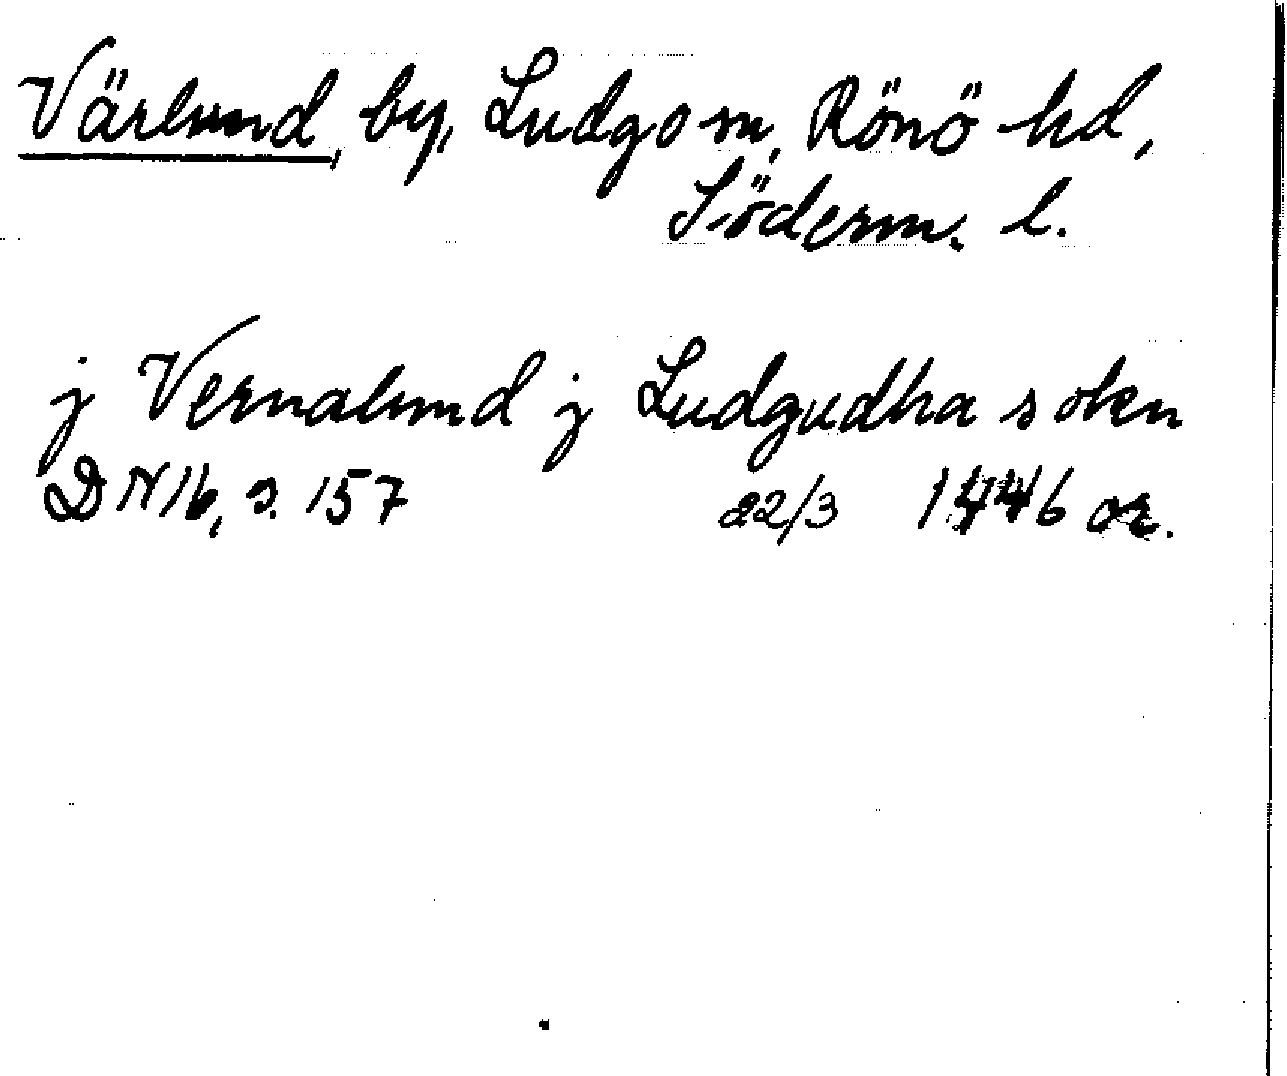 Värlund, by, Ludgo sn, Rönö hd,
Söderm. l.
j Vernalund j Ludgudha sokn
DN 16, s. 157 22/3 1446 or.